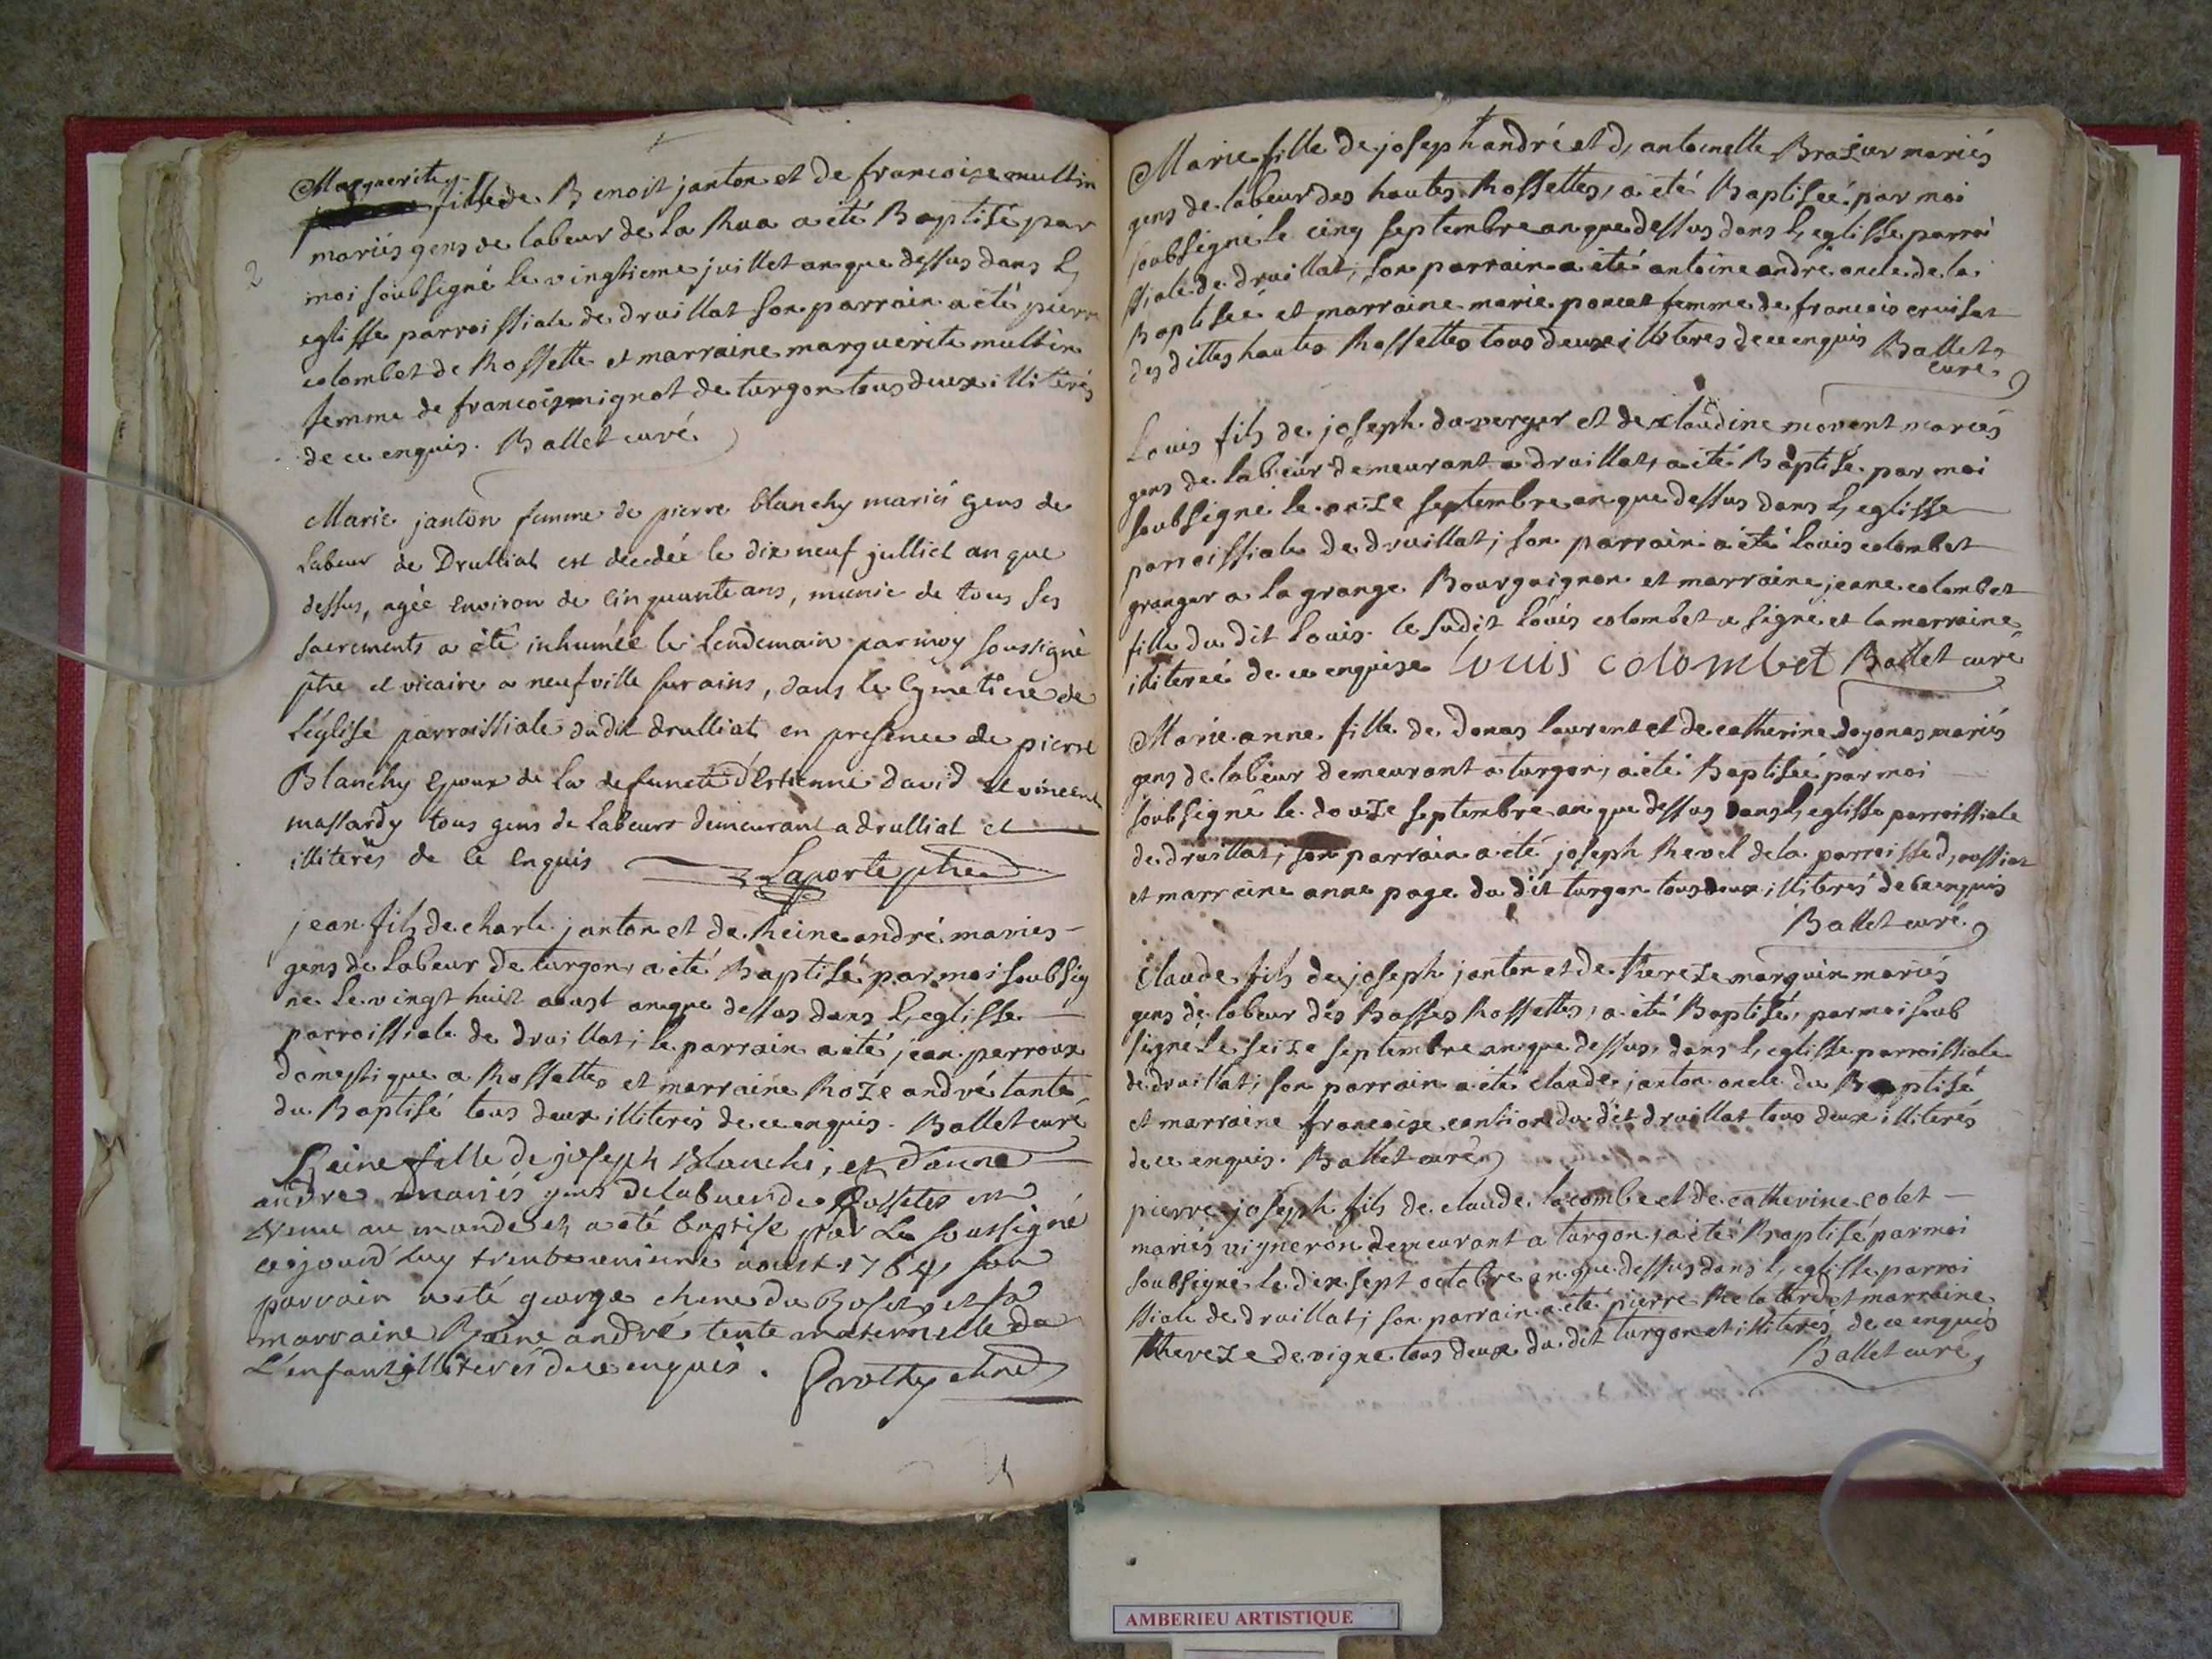 Marguerite
fille de Benoit janton et de francoise multin
mariés gens de labeur de la Rua a été Baptisé par
moi soubsigné le vingtieme juillet an que dessus dans L,
eglisse parroissiale de druillat son parrain a été pierre
colombet de Rossette et marraine marguerite multin
femme de francois mignot de turgon tous deux illiterés
de ce enquis. Ballet curé
2
Marie janton femme de pierre blanchy mariés gens de
labeur de Drulliat est decedée le dix neuf julliet an que
dessus, agée Environ de Cinquante ans, munie de tous ses
sacrements a été inhumée le Lendemain par moy soussigné
ptre et vicaire a neufville sur ains, dans le Cymetiere de
L'église parroissiale dudit drulliat en presence de pierre
Blanchy Epoux de la defuncte d'Estienne david et vincent
massardy tous gens de Labeur demeurant a drulliat et
illiterés de ce Enquis Laporte ptre
jean fils de charle janton et de Reine andré mariés
gens de Labeur de turgon, a été Baptisé par moi soubsig
né le vingt huit aoust an que dessus dans L, eglisse
parroissiale de druillat; le parrain a été jean perroux
domestique a Rossettes et marraine Roze andré tante
du Baptisé tous deux illiterés de ce enquis. Ballet curé
Reine fille de joseph Blanchi, et d'anne
andre mariés gens de labeur de Rossetes est
venue au monde et a été baptise par Le soussigné
ce jourd'huy trente unieme aoust 1764 son
parrain a été george chene du Roset et sa
marraine Reine andré tente maternelle de
L'enfant illiterés de ce enquis.
Marie fille de joseph andré et d, antoinette Brazier mariés
gens de labeur des hautes Rossettes, a été Baptiseé par moi
soubsigné le cinq septembre an que dessus dans L, eglisse parroi
ssiale de druillat; son parrain a été antoine andré oncle de la
Baptiseé et marraine marie poncet femme de francois cruiset
des dittes hautes Rossettes tous deux illiteres de ce enquis Ballet
curé
Louis fils de joseph duverger et de claudine monent mariés
gens de labeur demeurant a druillat, a été Baptisé par moi
soubsigné le onze septembre an que dessus dans L, eglisse
parroissiale de druillat; son parrain a été Louis colombet
granger a la grange Bourguignon et marraine jeane colombet
fille du dit Louis. le sudit Louis colombet a signé et la marraine
illitereé de ce enquise louis colombet Ballet curé
Marie anne fille de donas laurent et de catherine doyonas mariés
gens de labeur demeurant a turgon, a été Baptiseé par moi
soubsigné le douze septembre an que dessus dans L, eglisse parroissiale
de druillat; son parrain a été joseph Revel de la parroisse d,
et marraine anne page du dit turgon tous deux illiterés de ce enquis
Ballet curé
Claude fils de joseph janton et de thereze marguin mariés
gens de labeur des Basses Rossettes, a été Baptisé, par moi soub
signé le seize septembre an que dessus, dans L, eglisse parroissiale
de druillat; son parrain a été claude janton oncle du Baptisé
et marraine francoise cantion du dit druillat tous deux illiterés
de ce enquis. Ballet curé
pierre joseph fils de claude lacombe et de catherine colet
mariés vigneron demeurant a turgon, a été Baptisé par moi
soubsigné le dix sept octobre an que dessus dans L, eglisse parroi
ssiale de druillat; son parrain a été pierre et marraine
thereze de vigne tous deux du dit turgon et illiteres de ce enquis
Ballet curé
AMBERIEU ARTISTIQUE